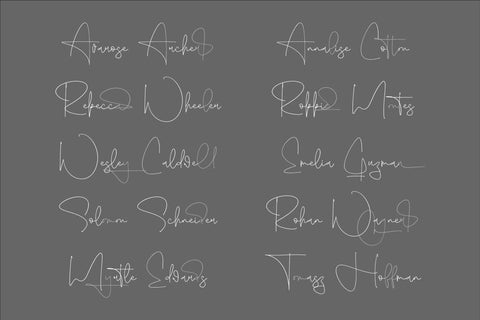 Avarose Archer
Annalise Cotton
Rebecca Wheeler
Robbie Montes
Wesley Caldwell
Emelia Guzman
Solomon Schneider
Rohan Wagner
Myrtle Edwards
Tomasz Hoffman